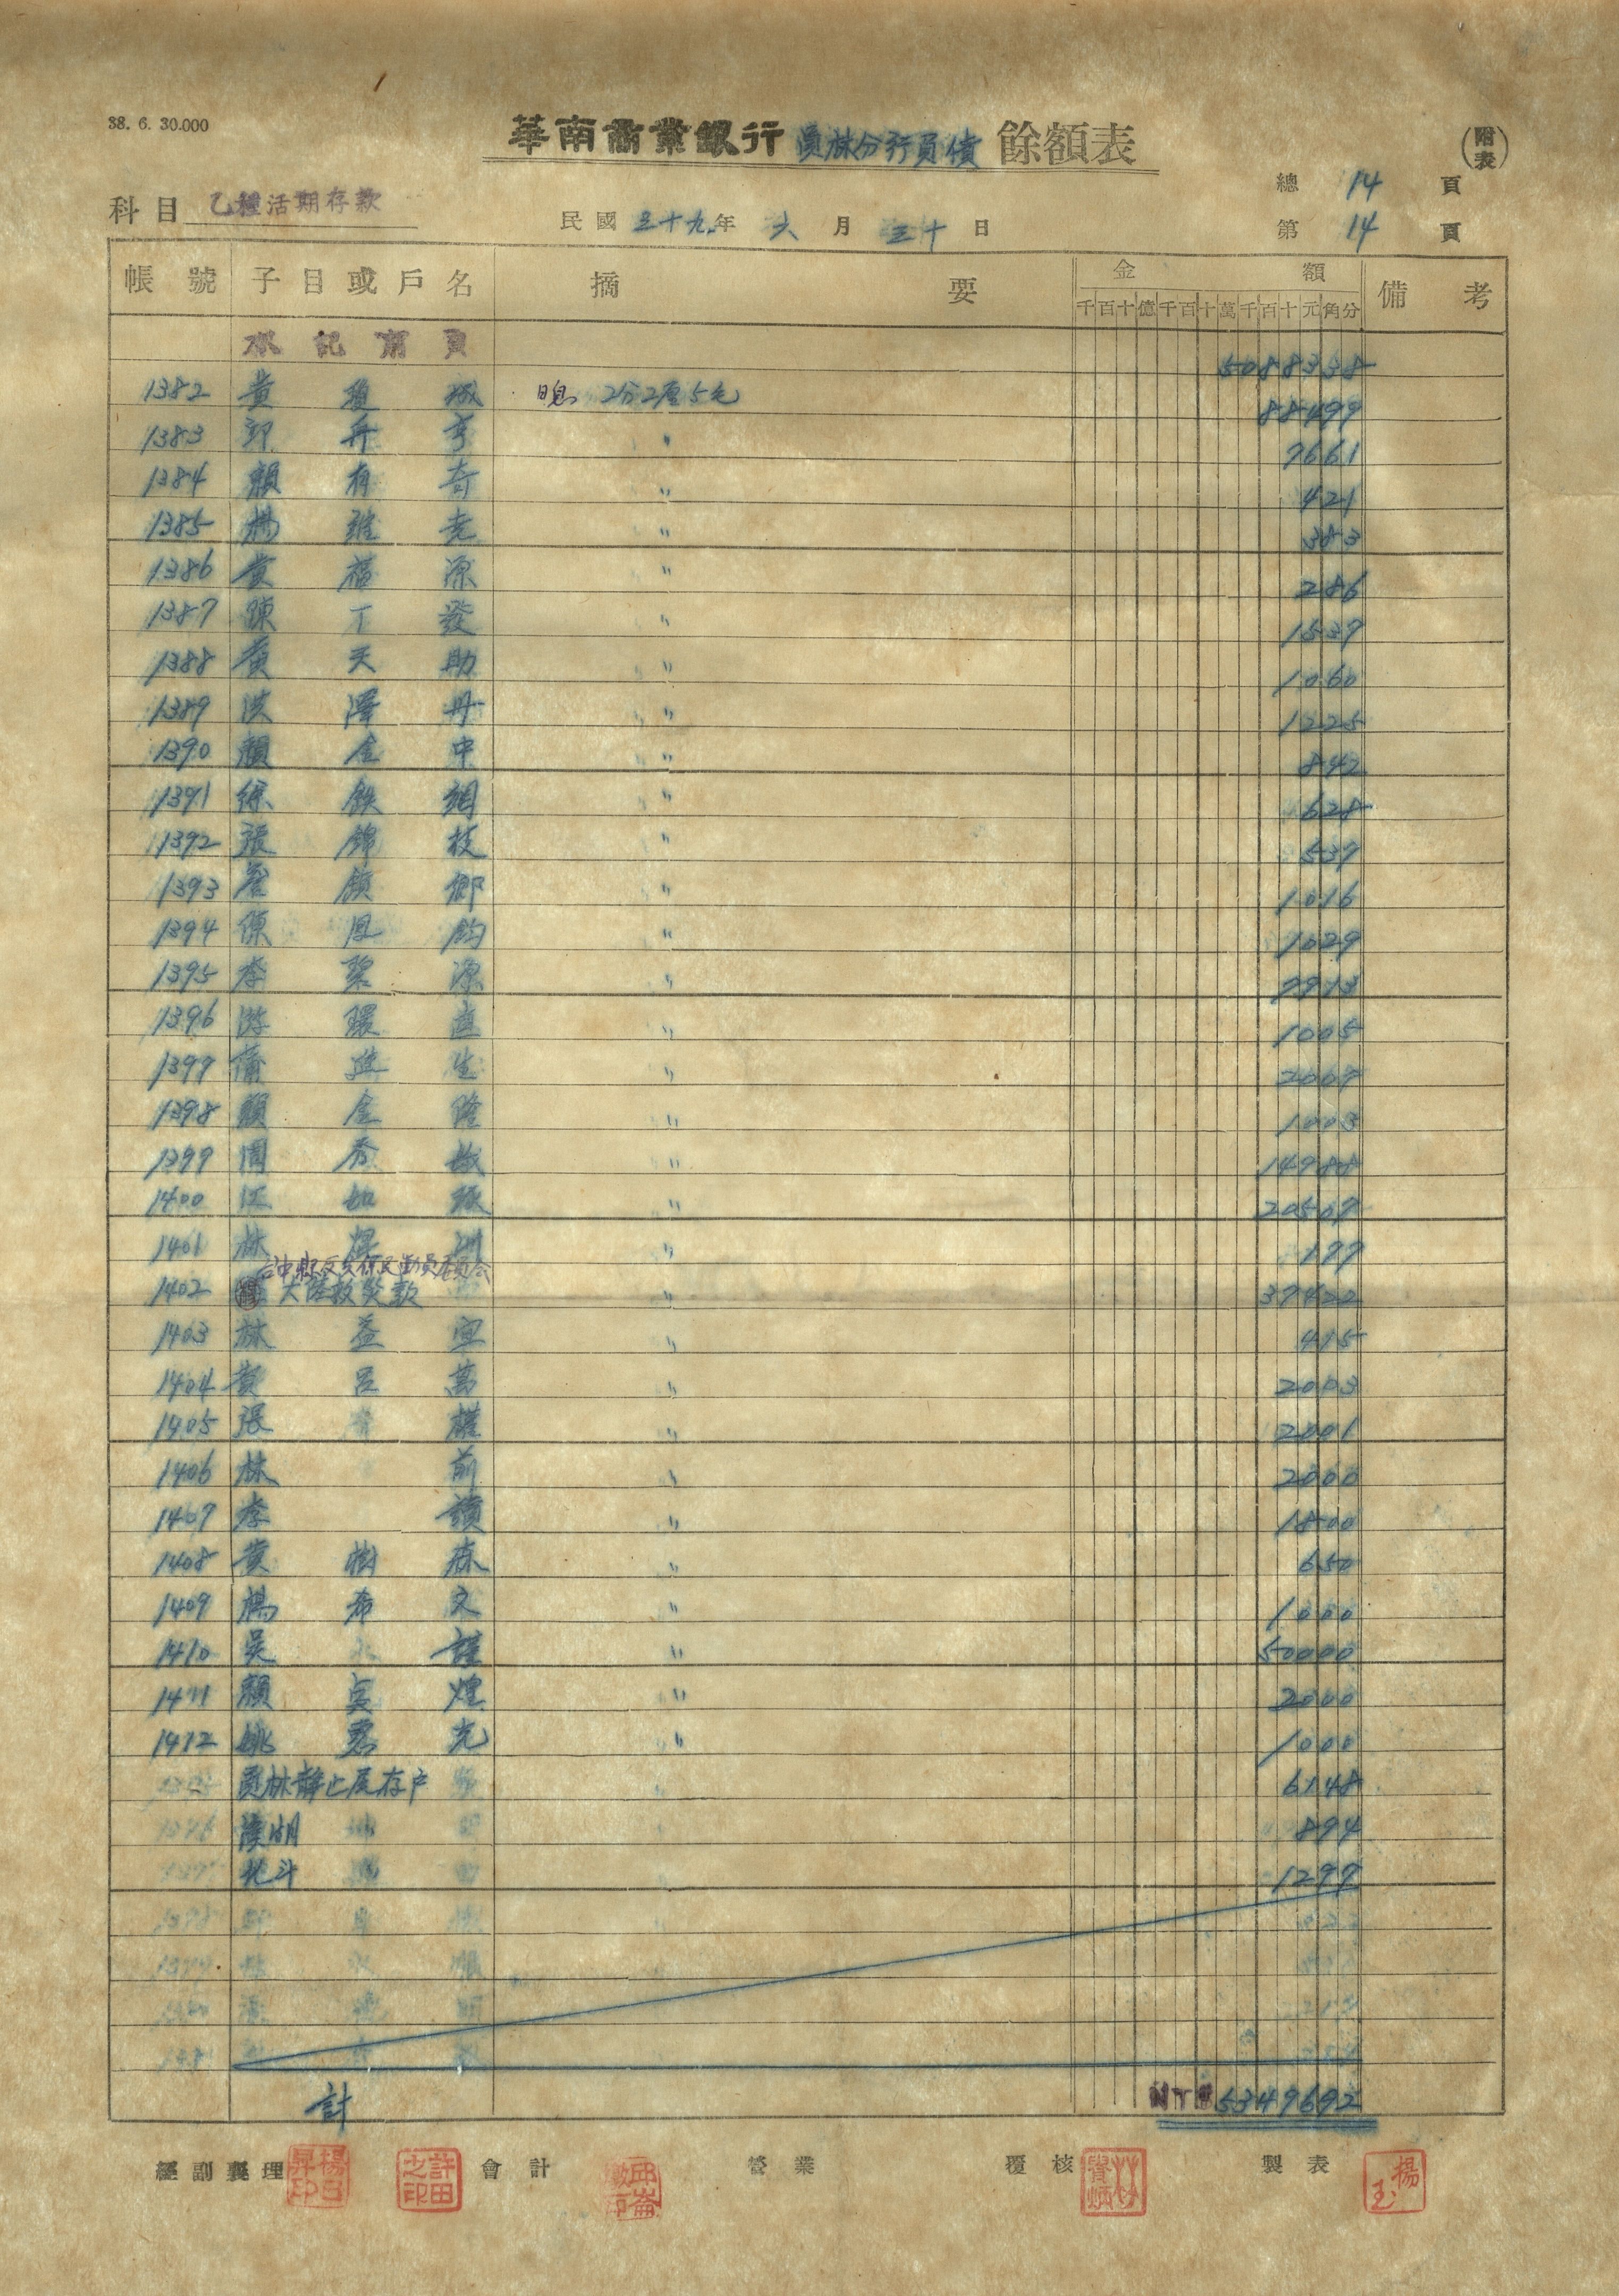 38. 6. 30.000
華南商業銀行 員林分行負債 餘額表
(附表)
總 14 頁
科目 乙種活期存款
民國 三十九年 六月 三十日
第 14 頁
帳號 子目或戶名 摘要 金額 備考
千百十億千百十萬千百十元角分
承記前頁 5088338
1382 黃 城 日息 2分2厘5毛 88499
1383 邱 舟 亨 〃 7661
1384 賴 有 奇 〃 421
1385 楊 維 堯 〃 383
1386 黃 福 源 〃 286
1387 陳 丁 發 〃 1537
1388 黃 天 助 〃 1060
1389 洪 澤 丹 〃 1225
1390 賴 金 中 〃 842
1391 徐 鉄 〃 628
1392 張 錦 枝 〃 537
1393 詹 鎮 鄉 〃 1016
1394 陳 鈞 〃 1029
1395 李 碧 源 〃 7713
1396 游 環 直 〃 1005
1397 進 生 〃 2007
1398 賴 金 隆 〃 1003
1399 周 秀 〃 14988
1400 江 如 〃 20507
1401 林 〃 177
台中縣反共保民動員委員會
1402 大陸救災款 〃 37422
1403 林 益 宜 〃 415
1404 黃 呂 萬 〃 2003
1405 張 〃 2001
1406 林 前 〃 2000
1407 李 讀 〃 1500
1408 黃 樹 森 〃 650
1409 楊 希 文 〃 1000
1410 吳 謹 〃 50000
1411 賴 煌 〃 2000
1412 姚 君 光 〃 1000
員林靜止尾存戶 6148
溪湖 894
北斗 1297
計 NT$ 5349692
經副襄理 會計 營業 覆核 製表
許田之印
楊玉